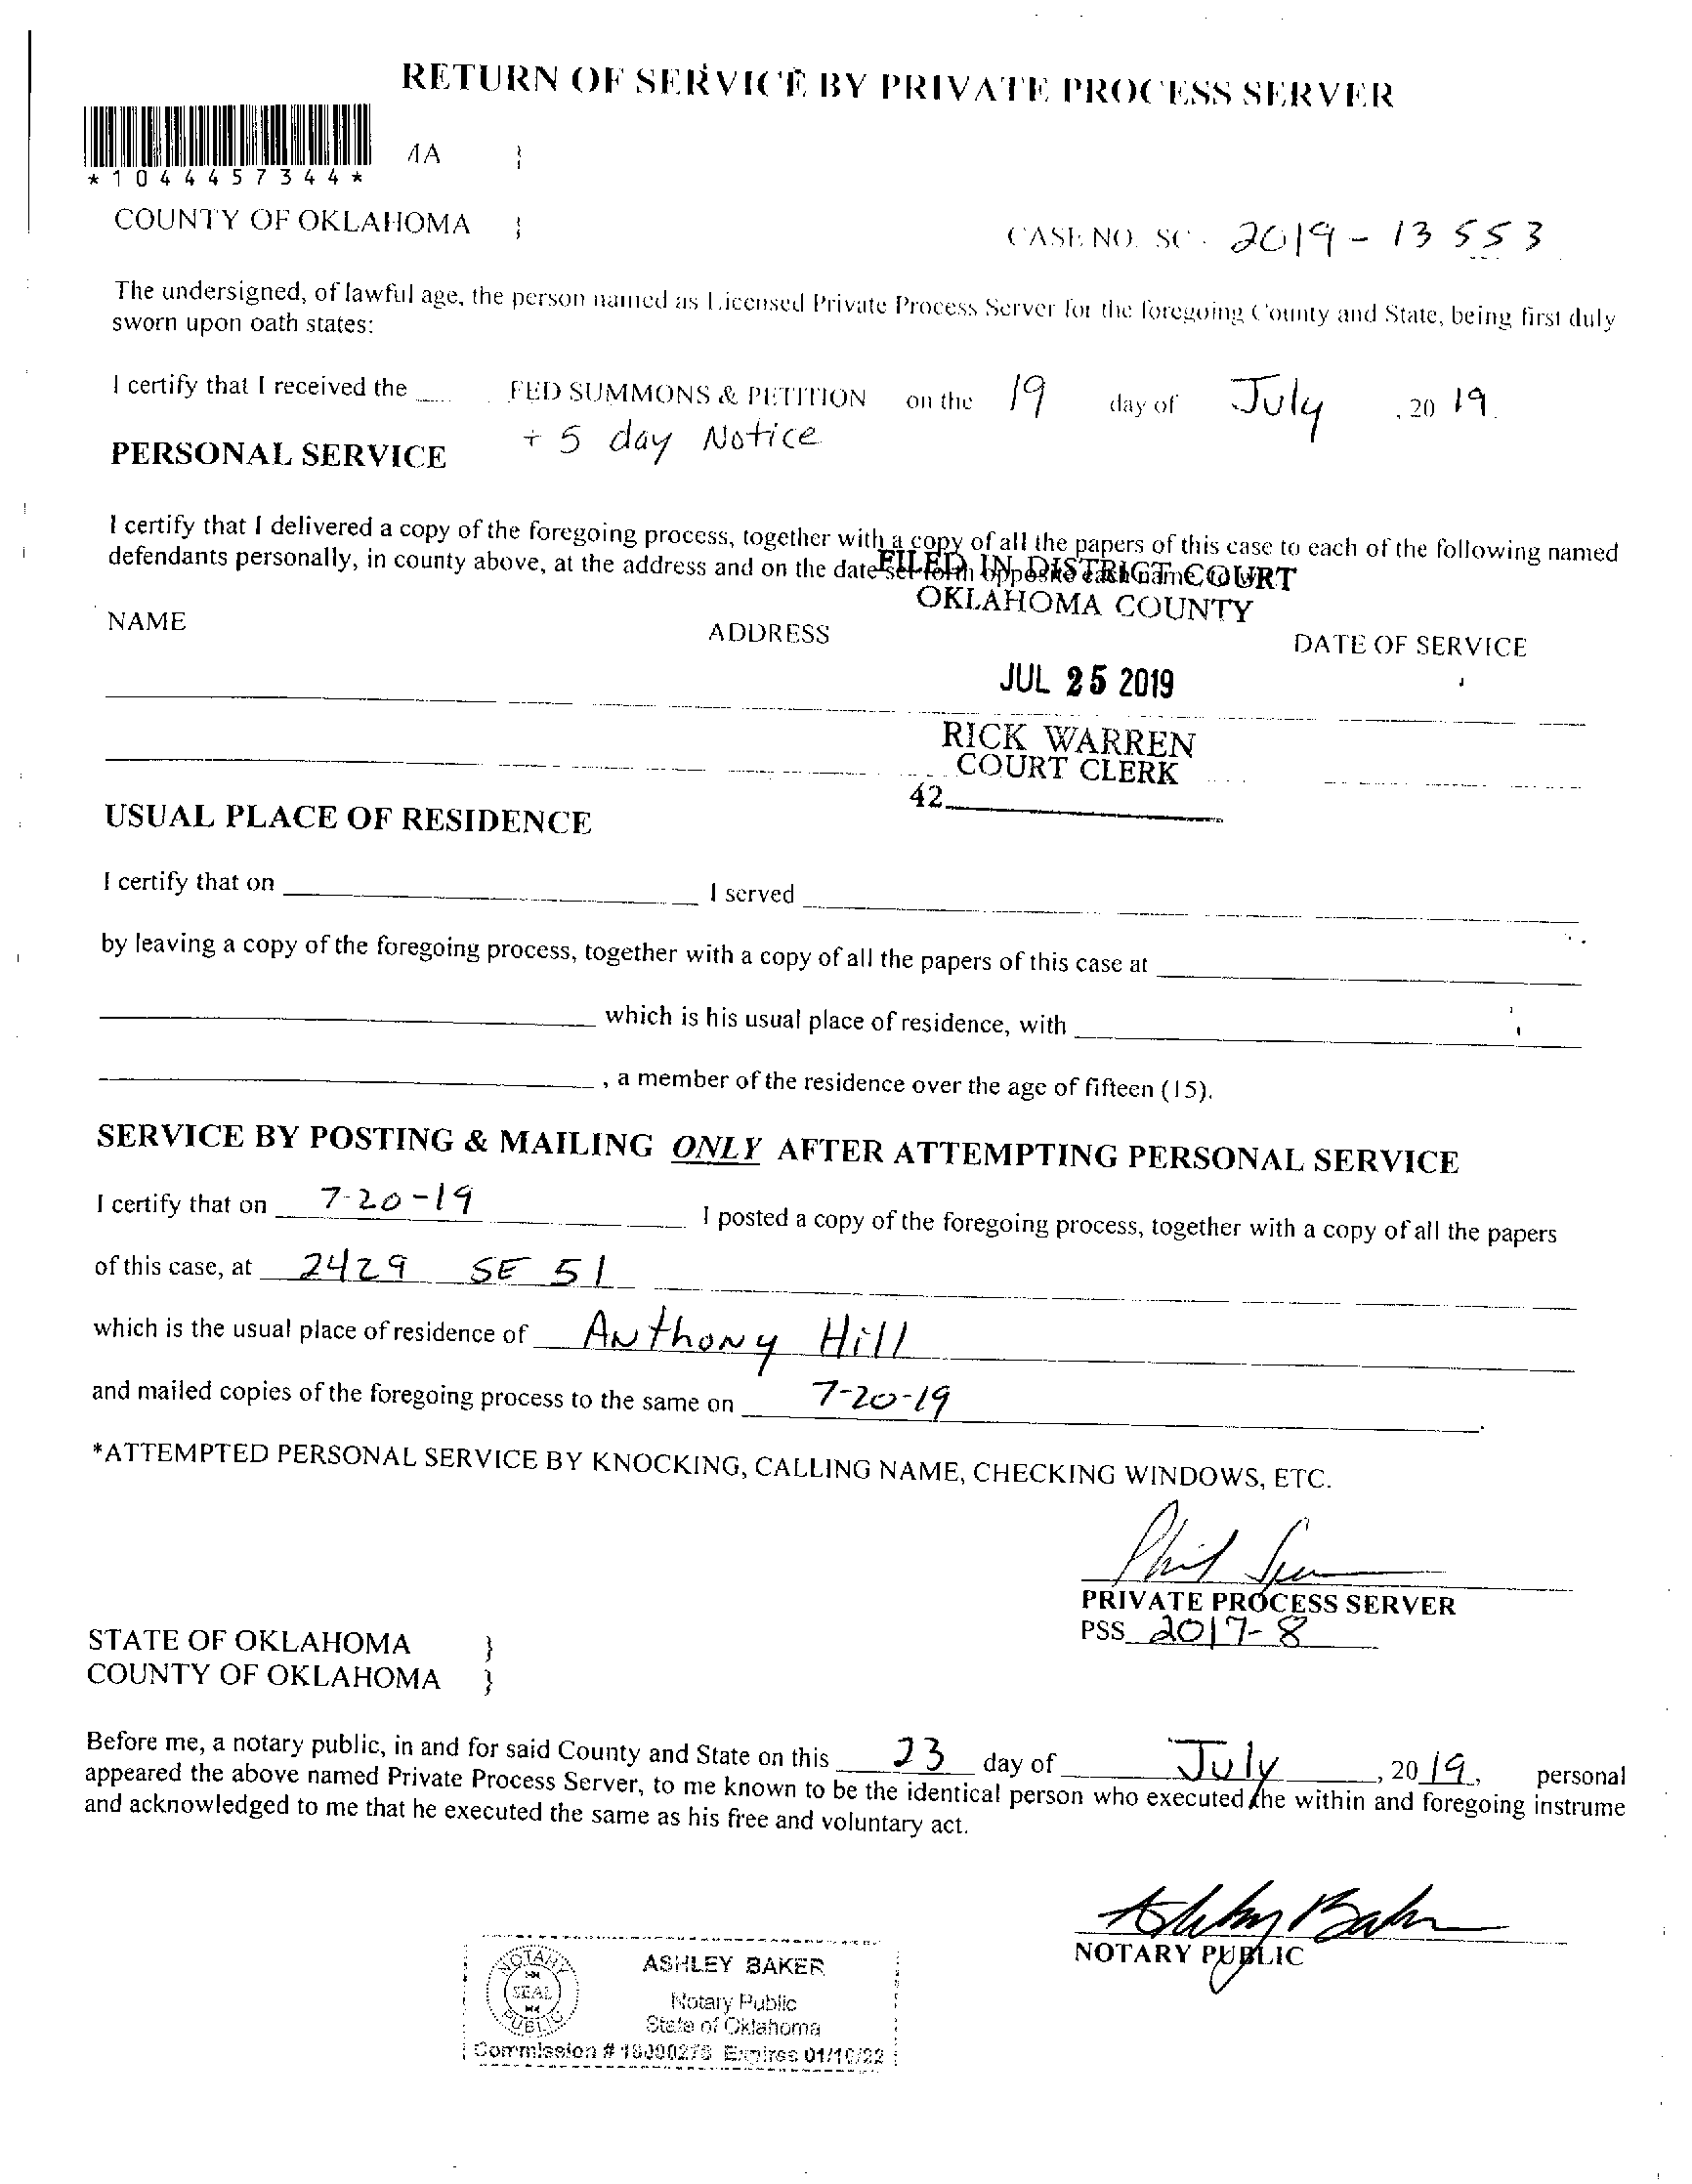 RETURN OF SERVICE BY PRIVATE PROCESS SERVER
MA }
*1044457344*
COUNTY OF OKLAHOMA }
CASE NO. SC - 2019 - 13553
The undersigned, of lawful age, the person named as Licensed Private Process Server for the foregoing County and State, being first duly
sworn upon oath states:
I certify that I received the FED SUMMONS & PETITION on the 19 day of July , 20 19.
+ 5 day Notice
PERSONAL SERVICE
I certify that I delivered a copy of the foregoing process, together with a copy of all the papers of this case to each of the following named
defendants personally, in county above, at the address and on the date set forth opposite each name
FILED IN DISTRICT COURT
OKLAHOMA COUNTY
NAME ADDRESS DATE OF SERVICE
JUL 25 2019
RICK WARREN
COURT CLERK
42
USUAL PLACE OF RESIDENCE
I certify that on I served
by leaving a copy of the foregoing process, together with a copy of all the papers of this case at
which is his usual place of residence, with
, a member of the residence over the age of fifteen (15).
SERVICE BY POSTING & MAILING ONLY AFTER ATTEMPTING PERSONAL SERVICE
I certify that on 7-20-19 I posted a copy of the foregoing process, together with a copy of all the papers
of this case, at 2429 SE 51
which is the usual place of residence of Anthony Hill
and mailed copies of the foregoing process to the same on 7-20-19
*ATTEMPTED PERSONAL SERVICE BY KNOCKING, CALLING NAME, CHECKING WINDOWS, ETC.
PRIVATE PROCESS SERVER
PSS 2017-8
STATE OF OKLAHOMA }
COUNTY OF OKLAHOMA }
Before me, a notary public, in and for said County and State on this 23 day of July , 20 19, personal
appeared the above named Private Process Server, to me known to be the identical person who executed the within and foregoing instrume
and acknowledged to me that he executed the same as his free and voluntary act.
Ashley Baker
NOTARY PUBLIC
NOTARY
SEAL
PUBLIC
ASHLEY BAKER
Notary Public
State of Oklahoma
Commission # Expires 01/10/22